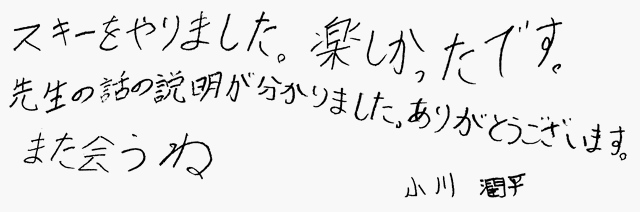 スキーをやりました。楽しかったです。
先生の話の説明が分かりました。ありがとうございます。
また会うね
小川 潤平